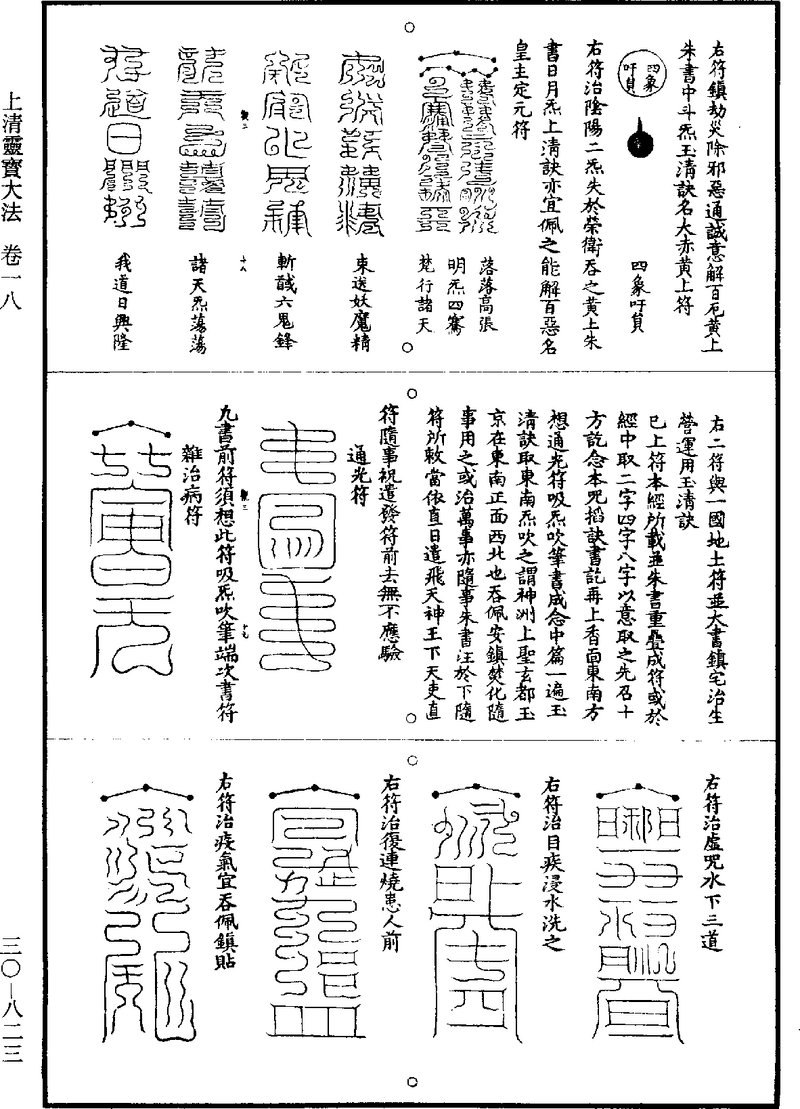 上清靈寶大法　卷一八
三〇—八二三
右符鎮劫災除邪惡通誠意解百厄黃上
朱書中斗炁玉清訣名大赤黃上符
四象吁員
四象吁員
右符治陰陽二炁失於榮衛吞之黃上朱
書日月炁上清訣亦宜佩之能解百惡名
皇主定元符
落落高張
明炁四騫
梵行諸天
束送妖魔精
斬馘六鬼鋒
諸天炁蕩蕩
我道日興隆
右二符與一國地土符並大書鎮宅治生
營運用玉清訣
已上符本經所載並朱書重疊成符或於
經中取二字四字八字以意取之先召十
方訖念本咒掐訣書訖再上香面東南方
想通光符吸炁吹筆書成念中篇一遍玉
清訣取東南炁吹之謂神洲上聖玄都玉
京在東南正面西北也吞佩安鎮焚化隨
事用之或治萬事亦隨事朱書注於下隨
符所敕當依直日遣飛天神王下天吏直
符隨事祝遣發符前去無不應驗
通光符
凡書前符須想此符吸炁吹筆端次書符
雜治病符
右符治虛咒水下三道
右符治目疾浸水洗之
右符治復連燒患人前
右符治疫氣宜吞佩鎮貼